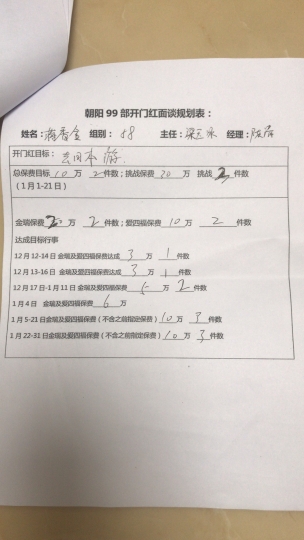 朝阳99部开门红面谈规划表：
姓名： 组别：58 主任： 经理：
开门红目标：去日本游.
总保费目标 10 万 2 件数；挑战保费 30 万 挑战 件数
（1月1-21日）
金瑞保费 万 2 件数；爱四福保费 10 万 2 件数
达成目标行事
12月12-14日金瑞及爱四福保费达成 3 万 1 件数
12月13-16日 金瑞及爱四福保费达成 3 万 1 件数
12月17日-1月11日金瑞及爱四福保费 5 万 2 件数
1月4日 金瑞及爱四福保费 6 万
1月5-21日金瑞及爱四福保费（不含之前指定保费）10 万 3 件数
1月22-31日金瑞及爱四福保费（不含之前指定保费）10 万 3 件数